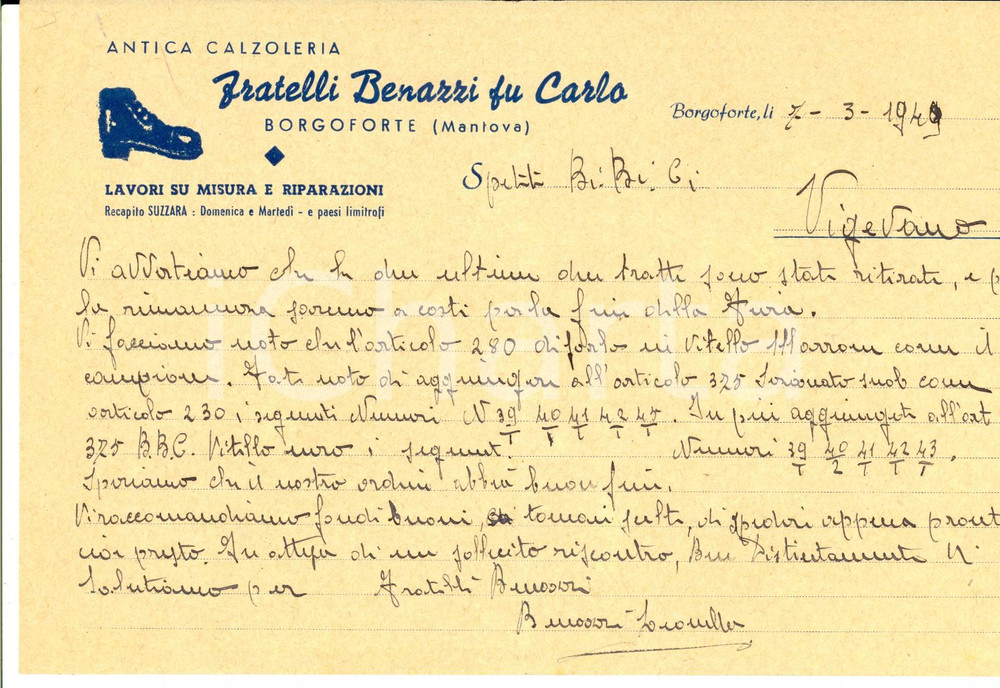 ANTICA CALZOLERIA
Fratelli Benazzi fu Carlo
BORGOFORTE (Mantova)
Borgoforte, li 7-3-1949
LAVORI SU MISURA E RIPARAZIONI
Recapito SUZZARA : Domenica e Martedì - e paesi limitrofi
Spettb Bi. Bi. Ci
Vigevano
Vi avvertiamo che le due ultime due tratte sono state ritirate, e p
la rimanenza saremo a costi per la fine della fiera.
Vi facciamo noto che l'articolo 280 di farlo in Vitello Marrone come il
campione. Fate noto di aggiungere all'articolo 325 snob come
articolo 230 i seguenti Numeri N 39/1 40/1 41/1 42/1 43/1. In più aggiungete all'art
325 B.B.C. Vitello nero i seguent. Numeri 39/1 40/2 41/1 42/1 43/1.
Speriamo che il nostro ordine abbia buon fine.
Vi raccomandiamo fondi buoni, tomaie scelte, di spedire appena pront
cioè presto. In attesa di un sollecito riscontro, Ben Distintamente Vi
Salutiamo per Fratelli Benazzi
Benazzi